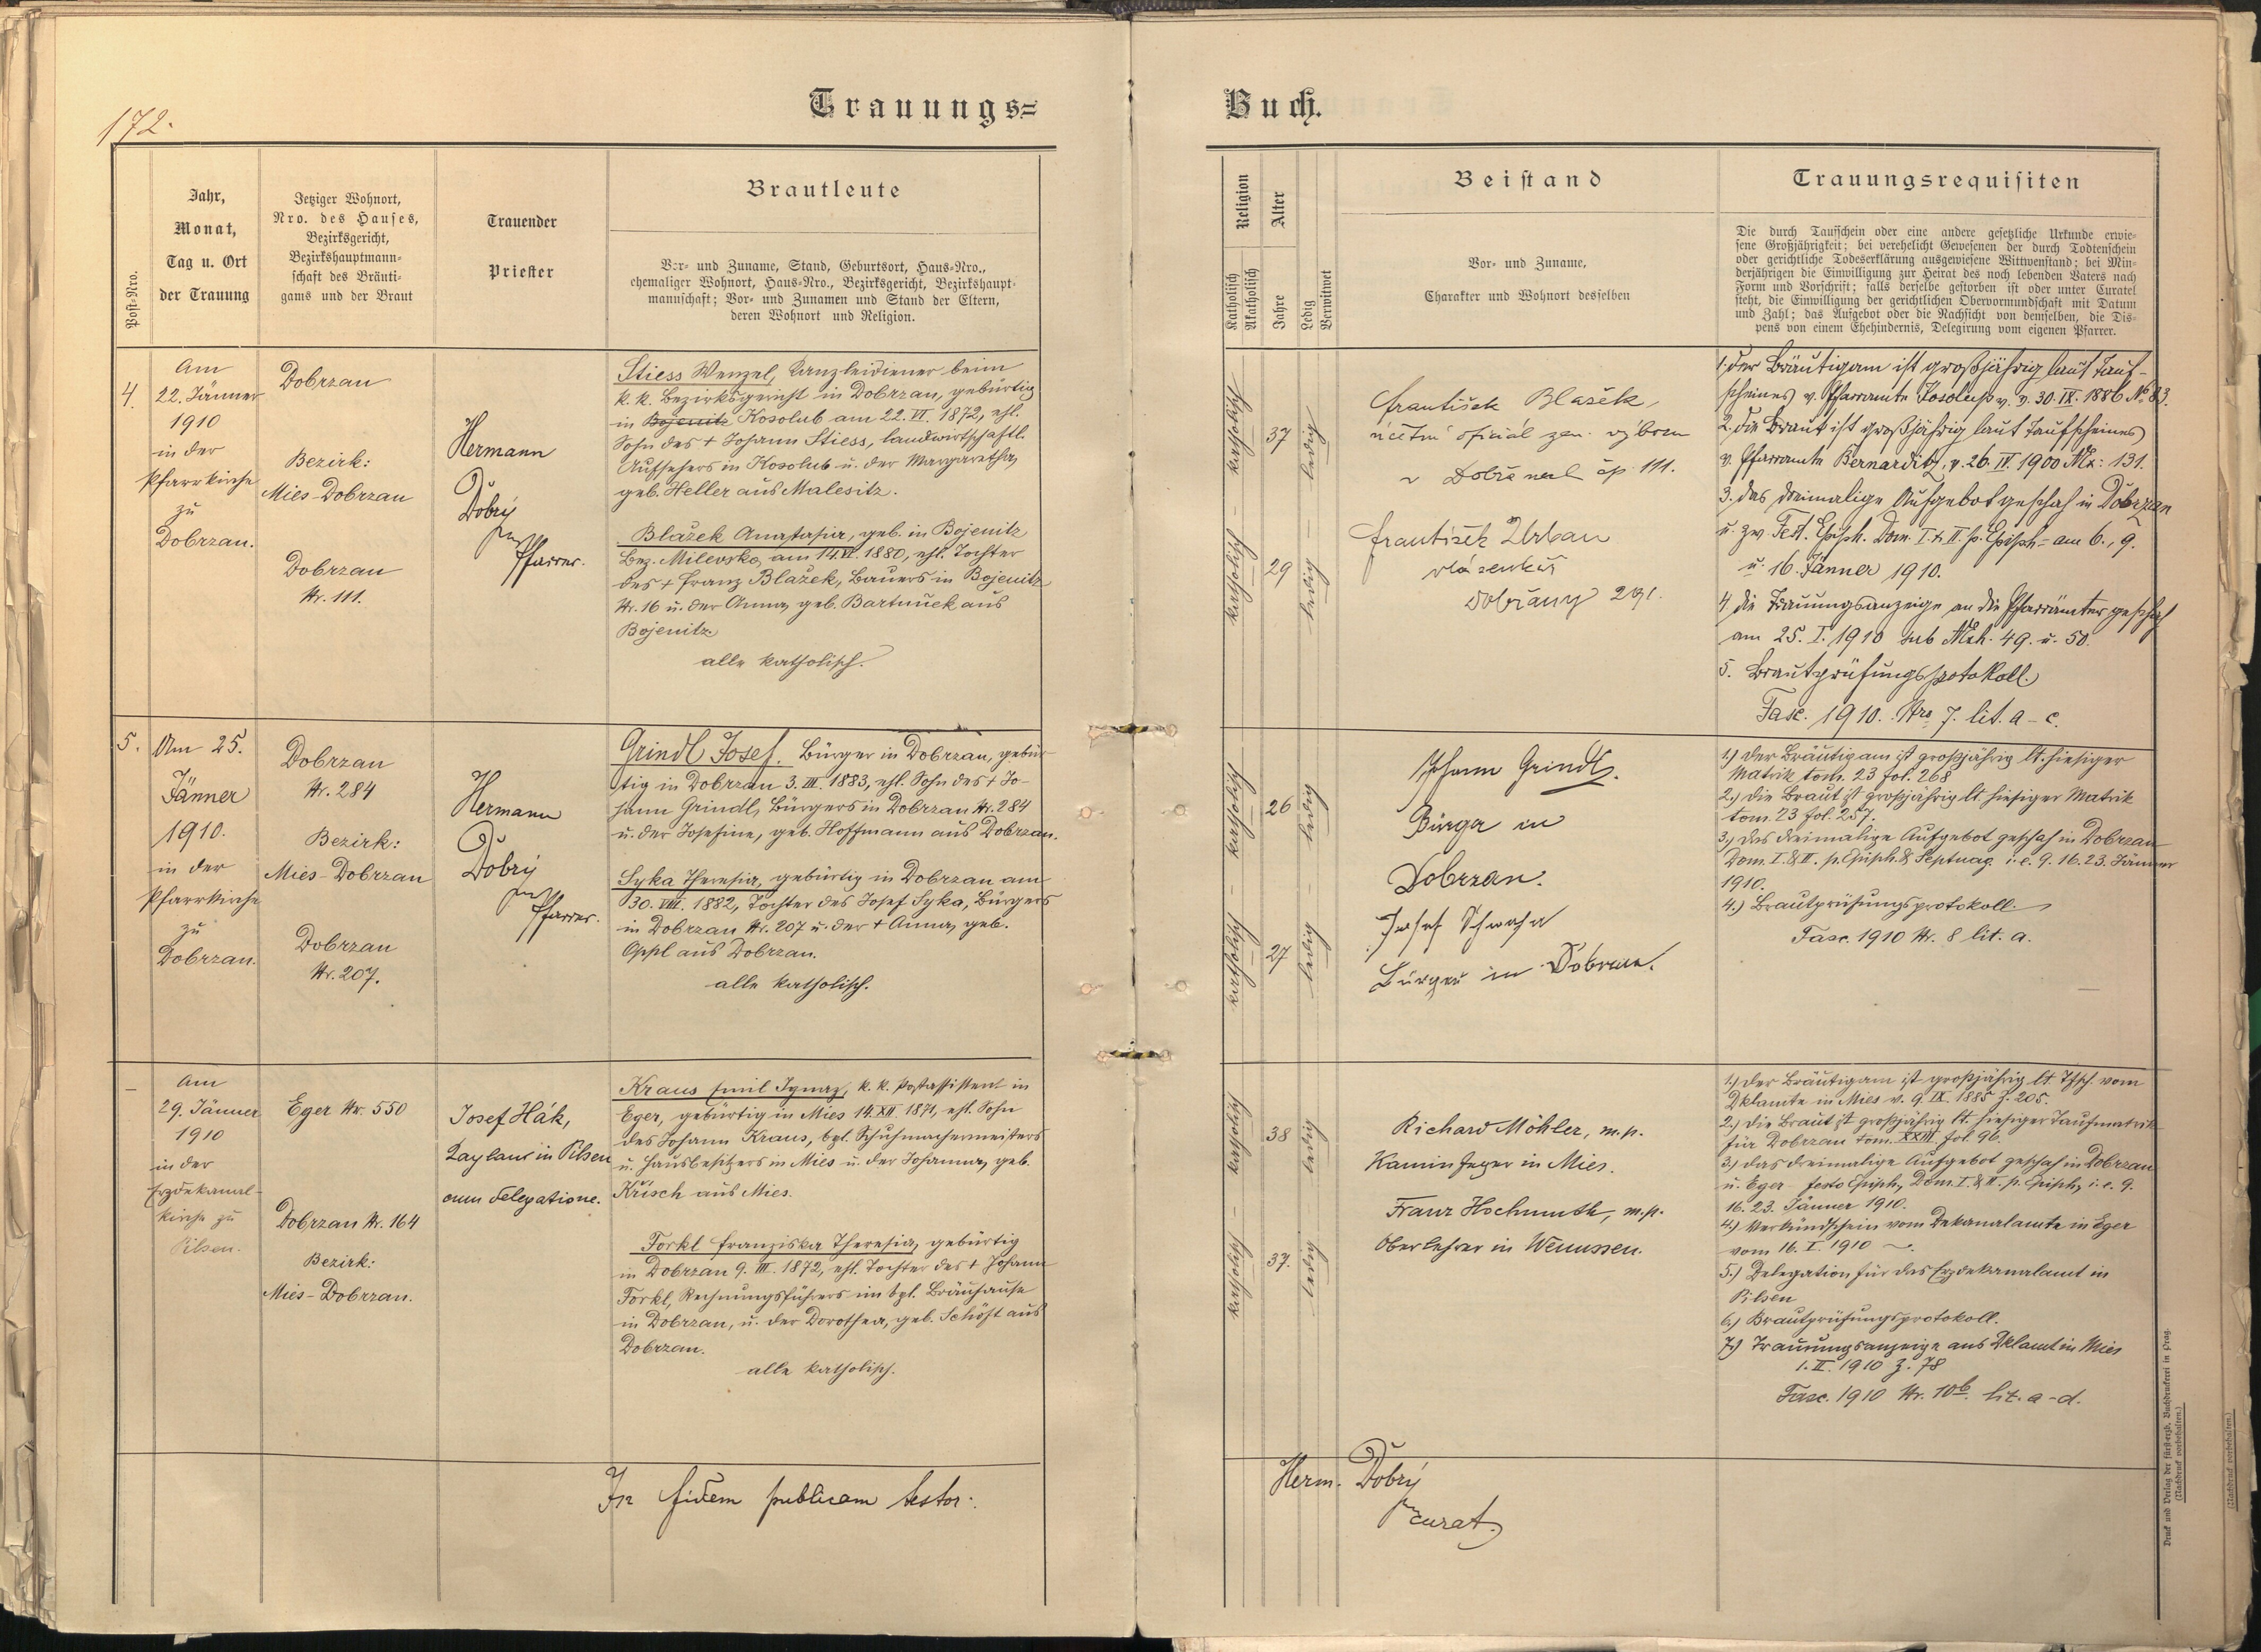 172.
Trauungs=
Post-Nro.
Jahr,
Monat,
Tag u. Ort
der Trauung
Jetziger Wohnort,
Nro. des Hauses,
Bezirksgericht,
Bezirkshauptmann-
schaft des Bräuti-
gams und der Braut
Trauender
Priester
Brautleute
Vor- und Zuname, Stand, Geburtsort, Haus-Nro.,
ehemaliger Wohnort, Haus-Nro., Bezirksgericht, Bezirkshaupt-
mannschaft; Vor- und Zunamen und Stand der Eltern,
deren Wohnort und Religion.
4.
Am
22. Jänner
1910
in der
Pfarrkirche
zu
Dobrzan.
Dobrzan
Bezirk:
Mies-Dobrzan
Dobrzan
Nr. 111.
Hermann
Dobrý
Pfarrer.
Stiess Wenzel, Kanzleidiener beim
k. k. Bezirksgericht in Dobrzan, gebürtig
in Bojenitz Kosolub am 22. VI. 1872, ehl.
Sohn des + Johann Stiess, landwirtschaftl.
Aufsehers in Kosolub u. der Margaretha,
geb. Heller aus Malesitz.
Blažek Anastasia, geb. in Bojenitz
Bez. Milevsko, am 14. VI. 1880, ehl. Tochter
des + Franz Blažek, Bauers in Bojenitz
Nr. 16 u. der Anna, geb. Bartuněk aus
Bojenitz.
alle katholisch.
5.
Am 25.
Jänner
1910.
in der
Pfarrkirche
zu
Dobrzan.
Dobrzan
Nr. 284
Bezirk:
Mies-Dobrzan
Dobrzan
Nr. 207.
Hermann
Dobrý
Pfarrer.
Grindl Josef, Bürger in Dobrzan, gebür-
tig in Dobrzan 3. III. 1883, ehl. Sohn des + Jo-
hann Grindl, Bürgers in Dobrzan Nr. 284
u. der Josefine, geb. Hoffmann aus Dobrzan.
Syka Theresia, gebürtig in Dobrzan am
30. VIII. 1882, Tochter des Josef Syka, Bürgers
in Dobrzan Nr. 207 u. der + Anna, geb.
Oppl aus Dobrzan.
alle katholisch.
–
Am
29. Jänner
1910
in der
Erzdekanal-
kirche zu
Pilsen.
Eger Nr. 550
Dobrzan Nr. 164
Bezirk:
Mies-Dobrzan.
Josef Hák,
Kaplan in Pilsen
cum delegatione.
Kraus Emil Ignaz, k. k. Postassistent in
Eger, gebürtig in Mies 14. XII. 1871, ehl. Sohn
des Johann Kraus, bgl. Schuhmachermeisters
u. Hausbesitzers in Mies u. der Johanna, geb.
Krisch aus Mies.
Forkl Franziska Theresia, gebürtig
in Dobrzan 9. III. 1872, ehl. Tochter des + Johann
Forkl, Rechnungsführers im bgl. Bräuhause
in Dobrzan, u. der Dorothea, geb. Schöst aus
Dobrzan.
alle katholisch.
In fidem publicam testor:
Buch.
Religion
Katholisch
Akatholisch
Alter
Jahre
Ledig
Verwitwet
Beistand
Vor- und Zuname,
Charakter und Wohnort desselben
Trauungsrequisiten
Die durch Taufschein oder eine andere gesetzliche Urkunde erwie-
sene Großjährigkeit; bei verehelicht Gewesenen der durch Todtenschein
oder gerichtliche Todeserklärung ausgewiesene Wittwenstand; bei Min-
derjährigen die Einwilligung zur Heirat des noch lebenden Vaters nach
Form und Vorschrift; falls derselbe gestorben ist oder unter Curatel
steht, die Einwilligung der gerichtlichen Obervormundschaft mit Datum
und Zahl; das Aufgebot oder die Nachsicht von demselben, die Dis-
pens von einem Ehehindernis, Delegirung vom eigenen Pfarrer.
katholisch – katholisch –
37
29
ledig – ledig –
František Blažek,
účetní oficiál zem. výboru
v Dobřanech čp. 111.
František Urban
vlásenkář
Dobřany 291.
1. der Bräutigam ist großjährig laut Tauf-
scheines v. Pfarramte Kosolup v. 30. IX. 1886 No 83.
2. die Braut ist großjährig laut Taufscheines
v. Pfarramte Bernarditz, v. 26. IV. 1900 : 131.
3. das dreimalige Aufgebot geschah in Dobrzan
u. zw. Fest. Epiph. Dom. I. & II. p. Epiph. = am 6., 9.
u. 16. Jänner 1910.
4. die Trauungsanzeige an die Pfarrämter geschah
am 25. I. 1910 sub 49. u. 50.
5. Brautprüfungsprotokoll.
Fasc. 1910. Nro 7. lit. a – c.
katholisch – katholisch
26
27
ledig – ledig
Johann Grindl.
Bürger in
Dobrzan.
Josef
Bürger in Dobrzan.
1.) Der Bräutigam ist großjährig lt. hiesiger
Matrik tom. 23 fol. 268
2.) Die Braut ist großjährig lt. hiesiger Matrik
tom. 23 fol. 257.
3.) Das dreimalige Aufgebot geschah in Dobrzan
Dom. I. & II. p. Epiph. & Septuag. i. e. 9. 16. 23. Jänner
1910.
4.) Brautprüfungsprotokoll.
Fasc. 1910 Nr. 8 lit. a.
katholisch – katholisch
38
37.
ledig ledig
Richard Möhler, m. p.
Kaminfeger in Mies.
Franz Hochmuth, m. p.
Oberlehrer in Wenussen.
1.) Der Bräutigam ist großjährig lt. Tfsch. vom
Dklamte in Mies v. 9. IX. 1885 Z. 205.
2.) Die Braut ist großjährig lt. hiesiger Taufmatrik
für Dobrzan tom. XXIII. fol. 96.
3.) Das dreimalige Aufgebot geschah in Dobrzan
u. Eger festo Epiph., Dom. I. & II. p. Epiph., i. e. 9.
16. 23. Jänner 1910.
4.) Verkündschein vom Dekanalamte in Eger
vom 16. I. 1910
5.) Delegation für das Erzdekanalamt in
Pilsen
6.) Brautprüfungsprotokoll.
7.) Trauungsanzeige ans Dklamt in Mies
1. II. 1910 Z. 78
Fasc. 1910 Nr. 10b. lit. a – d.
Herm. Dobrý
curat.
Druck und Verlag der fürst-erzb. Buchdruckerei in Prag.
(Nachdruck vorbehalten.)
(Nachdruck vorbehalten.)